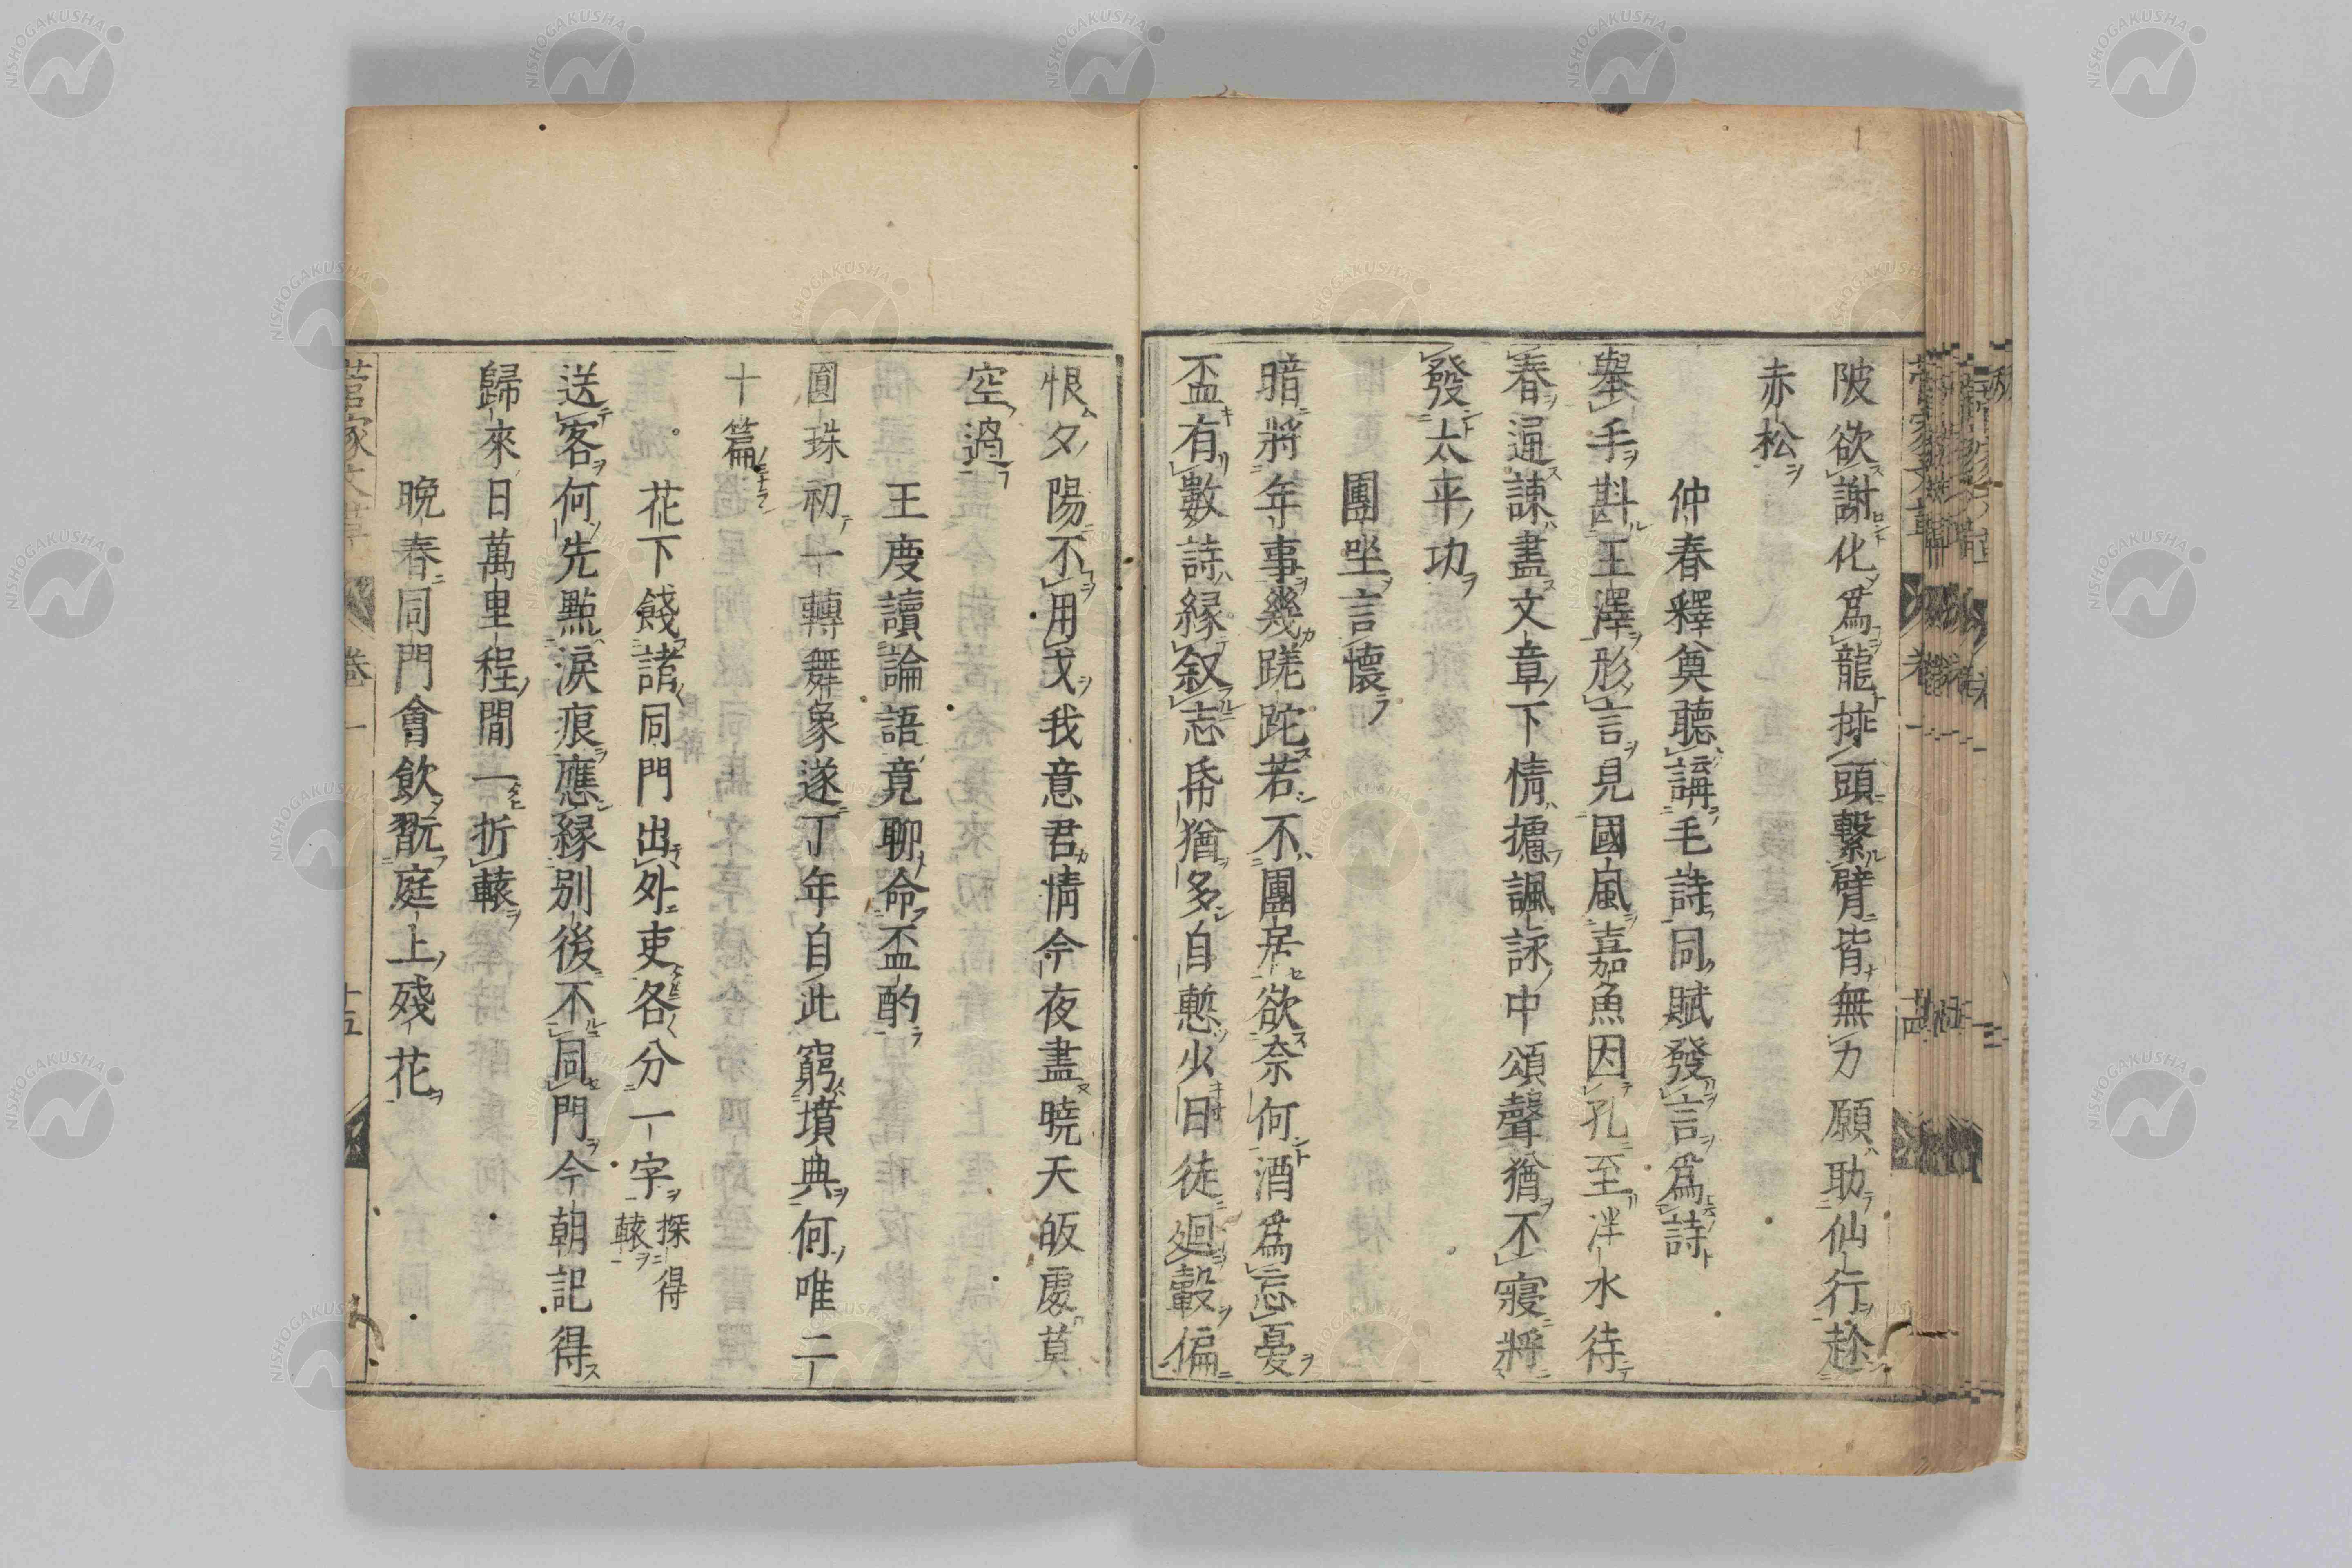 陂欲謝化爲龍排頭繋臂皆無力願助仙行趁
赤松
仲春釋奠聽講毛詩同賦發言爲詩
舉手斟王澤形言見國風嘉魚因孔至泮水待
春通諫盡文章下情攄諷詠中頌聲猶不寢將
發太平功
團坐言懷
暗將年事幾蹉跎若不團居欲奈何酒爲忘憂
盃有數詩縁叙志帋猶多自慙少日徒廻轂偏
恨夕陽不用戈我意君情今夜盡曉天皈處莫
空過
王度讀論語竟聊命盃酌
圓珠初一轉舞象遂丁年自此窮墳典何唯二
十篇
花下餞諸同門出外吏各分一字探得
轅
送客何先點淚痕應縁別後不同門今朝記得
歸來日萬里程間一折轅
晩春同門會飲翫庭上殘花
菅家文草 卷一 十五
NISHOGAKUSHA